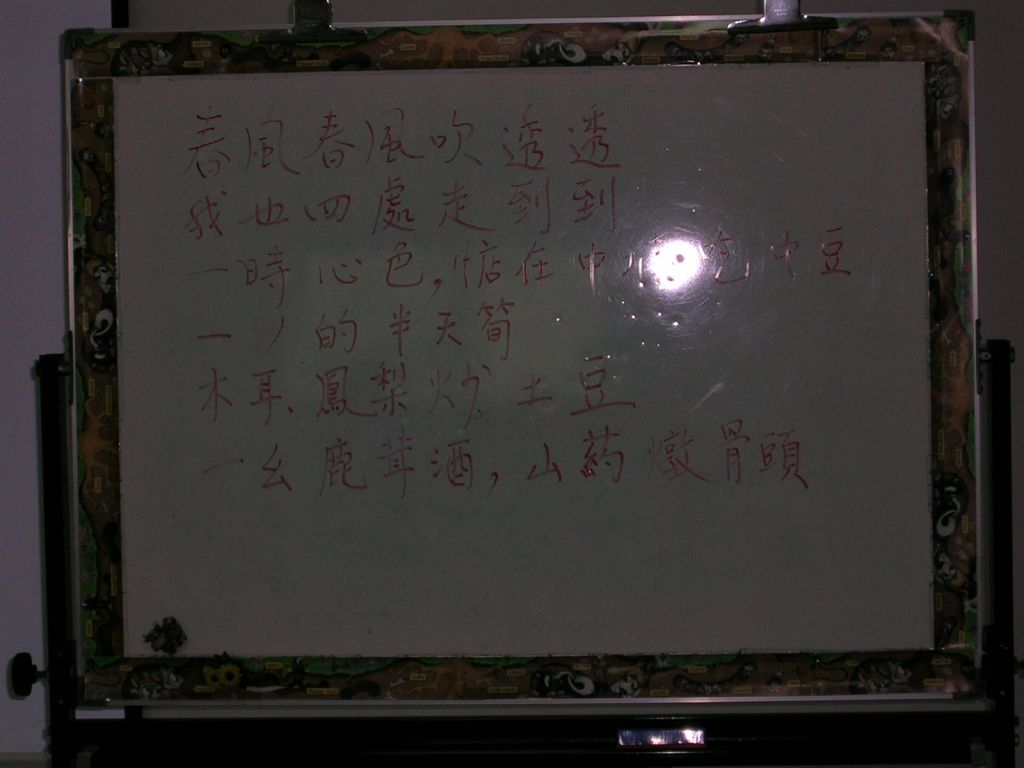 春風春風吹透透
我也四處走到到
一時心色，惦在中 吃中豆
一丿的半天筍
木耳、鳳梨炒土豆
一么鹿茸酒，山葯燉骨頭